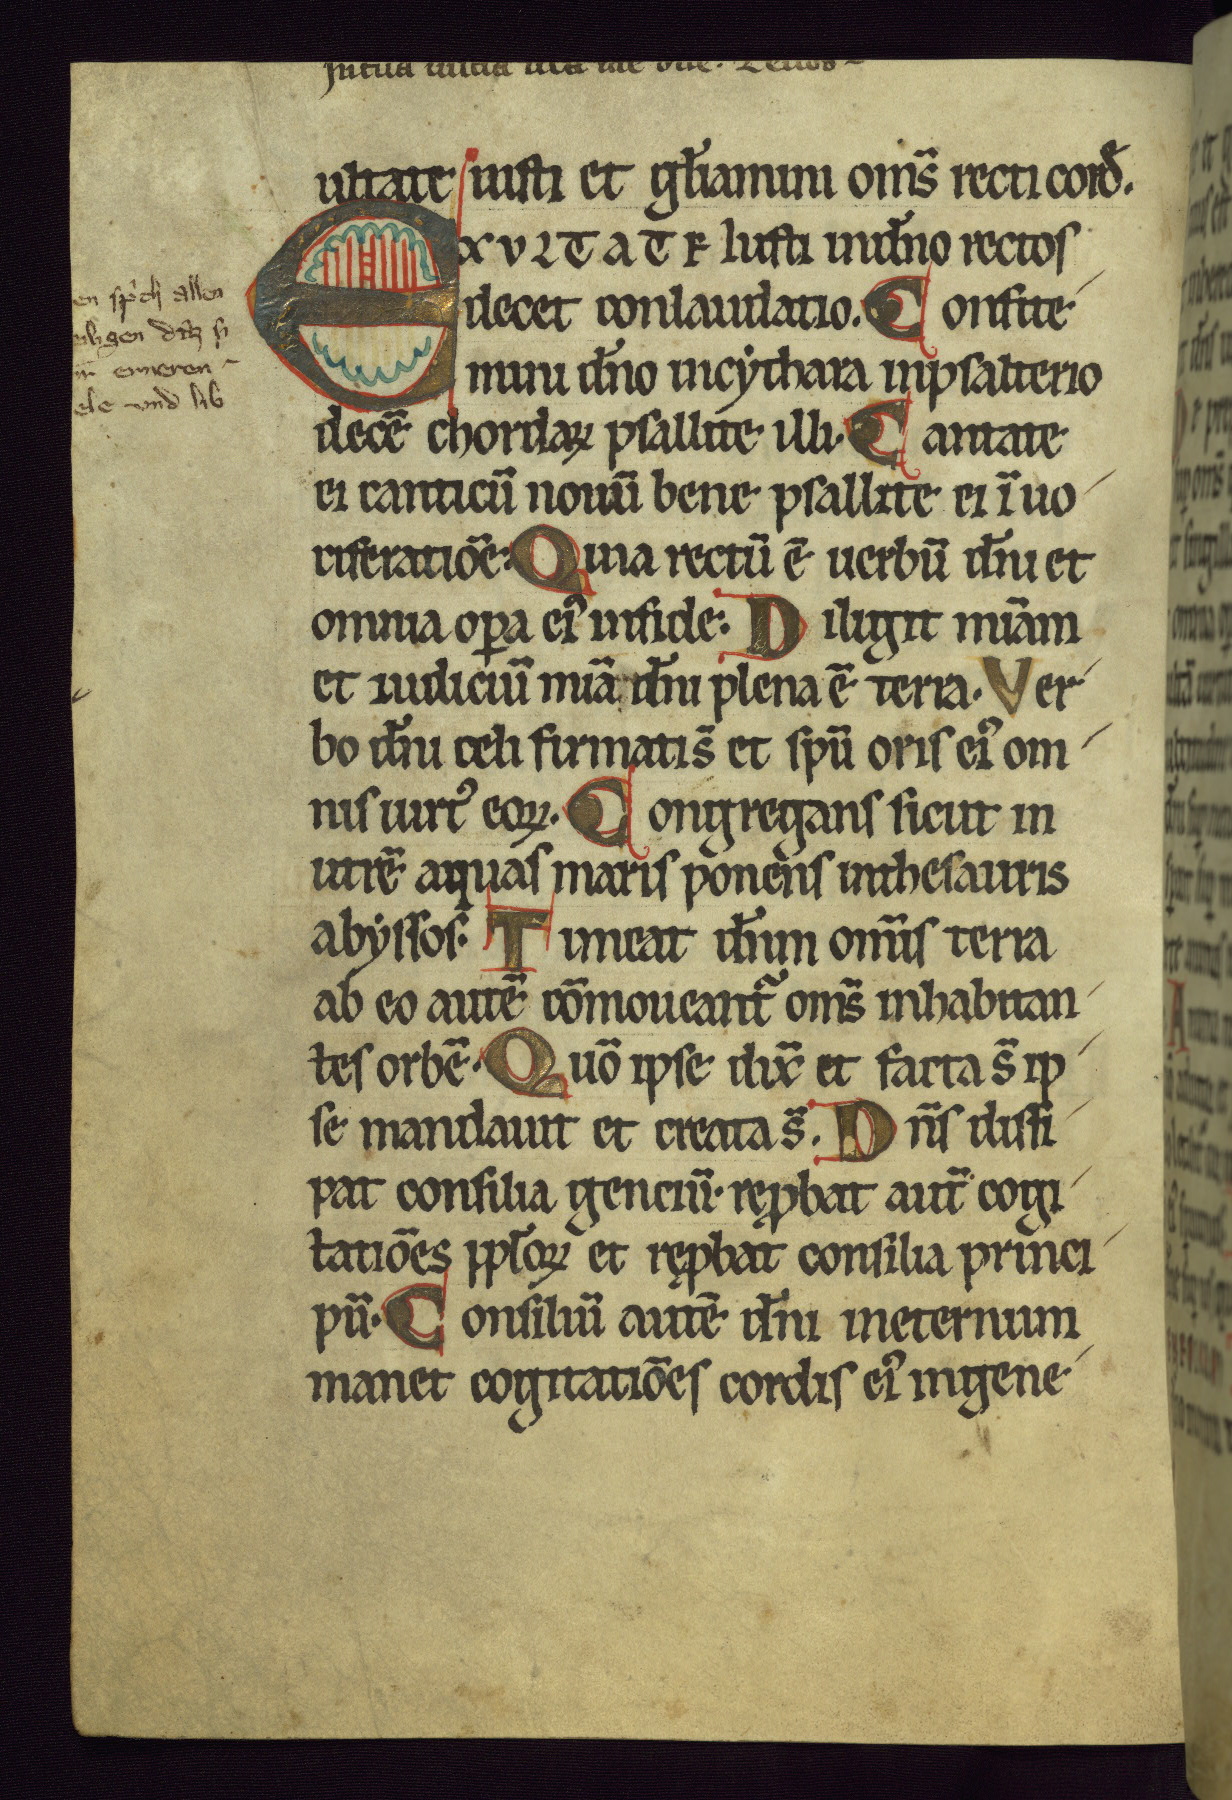 ultate iusti et gl̄iamini om̄s recti cord̄.
EXVLTATE Iusti in dn̄o rectos
decet conlaudatio. Confite
mini dn̄o in cythara in psalterio
decē chordaꝝ psallite illi. Cantate
ei canticū nouū bene psallite ei ī uo
ciferatiōe. Quia rectū ē uerbū dn̄i et
omnia oꝑa ei᾽ in fide. Diligit miām
et iudiciū miā dn̄i plena ē terra. Ver
bo dn̄i celi firmati s̄ et spū oris ei᾽ om
nis uirt᾽ eoꝝ. Congregans sicut in
utrē aquas maris ponens in thesauris
abyssos. Timeat dn̄m omīs terra
ab eo autē cōmoueant᾽ om̄s inhabitan
tes orbē. Quō ipse dix̄ et facta s̄ ip
se mandauit et creata s̄. Dn̄s dissi
pat consilia genciū. reꝓbat aut̄ cogi
tatiōes ppl̄oꝝ et reꝓbat consilia princi
pū. Consiliū autē dn̄i in eternum
manet cogitatiōes cordis ei᾽ in gene
en sp̄ch allen
ele vnd lib